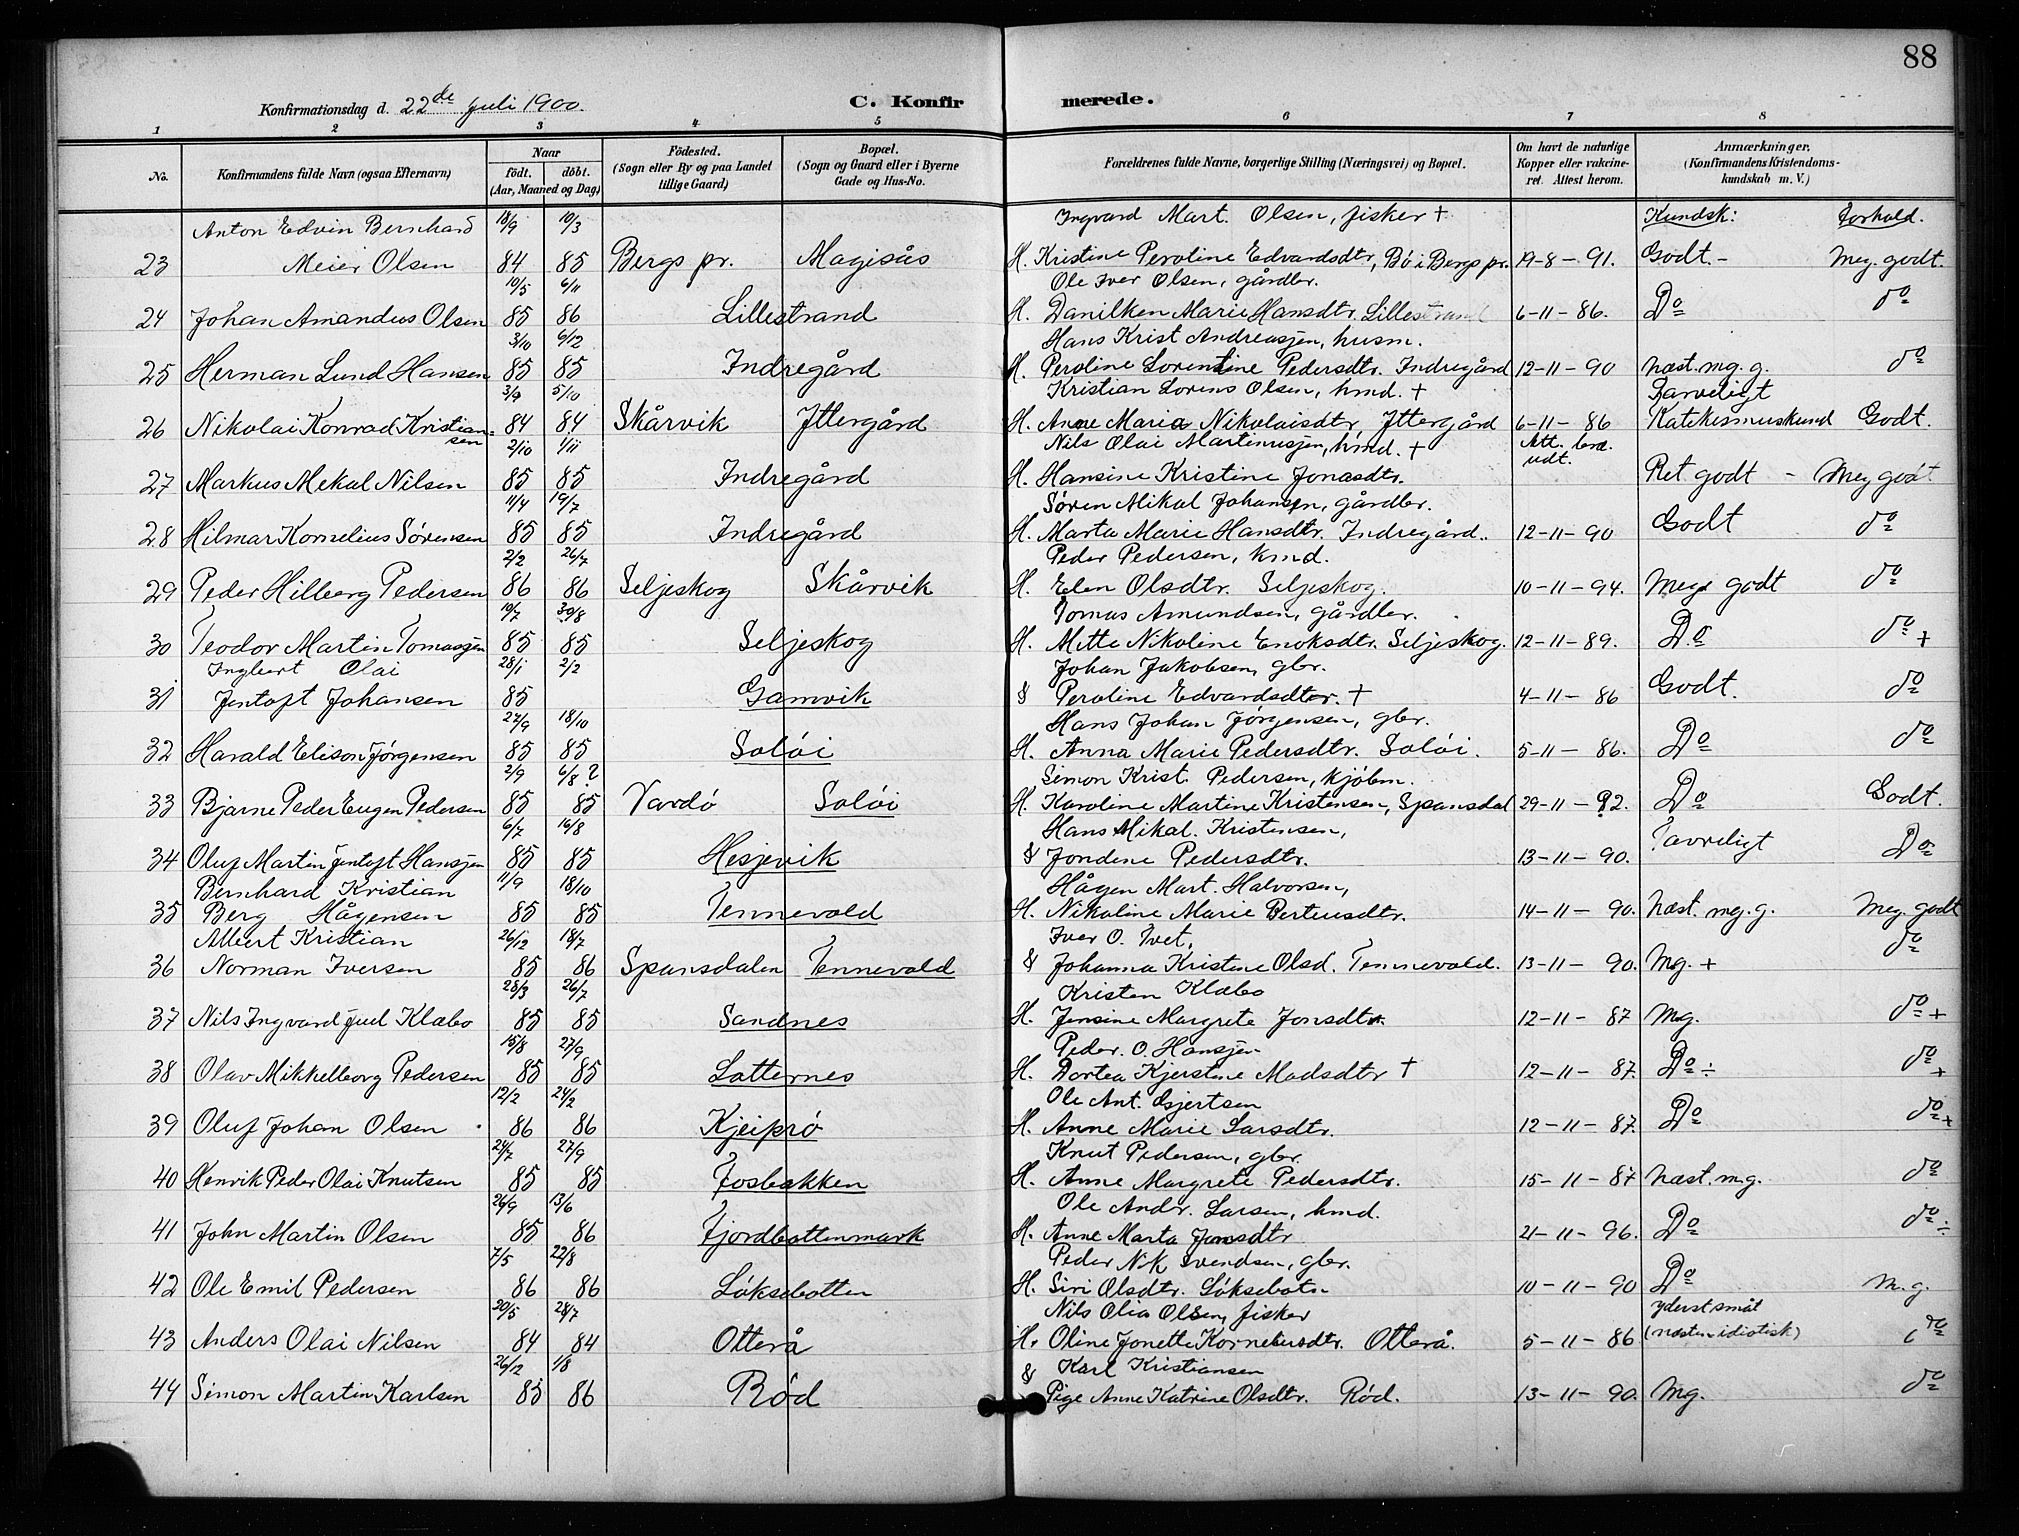 88
Konfirmationsdag d. 22de Juli 1900. C. Konfirmerede.
1 2 3 4 5 6 7 8
No. Konfirmandens fulde Navn (ogsaa Efternavn) Naar födt. döbt. (Aar, Maaned og Dag) Födested. (Sogn eller By og paa Landet tillige Gaard) Bopæl. (Sogn og Gaard eller i Byerne Gade og Hus-No. Forældrenes fulde Navne, borgerlige Stilling (Næringsvei) og Bopæl. Om havt de naturlige Kopper eller vaccineret. Attest herom. Anmærkninger. (Konfirmandens Kristendomskundskab m. V.)
Anton Edvin Bernhard 18/9 10/3 Ingvard Mart. Olsen, fisker + Kundsk: Forhold.
23 Meier Olsen 84 85 Bergs pr. Magisås H. Kristine Peroline Edvardsdtr, Bö i Bergs pr. 19-8-91. Godt.- Meg. godt.
10/5 6/11 Ole Iver Olsen, gårdbr.
24 Johan Amandus Olsen 85 86 Lillestrand H. Danilken Marie Hansdtr. Lillestrand 6-11-86. Do do
3/10 6/12 Hans Krist Andreasjen, husm.
25 Herman Lund Hansen 85 85 Indregård H. Peroline Lorentine Pedersdtr. Indregård 12-11-90 Næst. mg. g. do
3/9 5/10 Kristian Lorens Olsen, kmd. + Tarveligt
26 Nikolai Konrad Kristian= 84 84 Skårvik Ittergård H. Anne Maria Nikolaisdtr, Ittergård 6-11-86 Katekismuskund Godt.
sen 2/10 1/11 Nils Olai Martinusjen, kmd. + Att.
udt.
27 Markus Mekal Nilsen 85 85 Indregård H. Hansine Kristine Jonasdtr. Ret godt - Meg godt
11/4 19/7 Søren Mikal Johansen, gårdbr.
28 Hilmar Kornelius Sørensen 85 85 Indregård H. Marta Marie Hansdtr. Indregård.. 12-11-90 Godt do
2/2 26/7 Peder Pedersen, kmd.
29 Peder Hilberg Pedersen 86 86 Seljeskog Skårvik H. Elen Olsdtr. Seljeskog. 10-11-94. Meg godt do
10/7 30/8 Tomas Amundsen, gårdbr.
30 Teodor Martin Tomasjen 85 85 Seljeskog H. Mette Nikoline Enoksdtr. Seljeskog. 12-11-89. Do do +
Ingbert Olai 28/1 2/2 Johan Jakobsen, gbr.
31 Jentoft Johansen 85 Gamvik & Peroline Edvardsdtr. + 4-11-86 Godt. do
27/9 18/10 Hans Johan Jørgensen, gbr.
32 Harald Elison Jørgensen 85 85 Soløi H. Anna Marie Pedersdtr. Soløi. 5-11-86. Do do
2/9 6/8 ? Simon Krist. Pedersen, kjöbm.
33 Bjarne Peder Eugen Pedersen 85 85 Vardö Soløi H. Karoline Martine Kristensen, Spansdal 29-11-92. Do Godt.
6/7 16/8 Hans Mikal. Kristensen,
34 Oluf Martin Jentoft Hansjen 85 85 Hesjevik & Jondene Pedersdtr. 13-11-90. Tavreligt Do
Bernhard Kristian 11/9 18/10 Hågen Mart. Halvorsen,
35 Berg Hågensen 85 85 Tennevold H. Nikoline Marie Berteusdtr. 14-11-90. Næst. mg. g. Meg. godt
Albert Kristian 26/12 18/7 Iver O. Tvet,
36 Norman Iversen 85 86 Spansdalen Tennevold & Johanna Kristine Olsd. Tennevold. 13-11-90. Mg. + do
28/3 26/7 Kristen Klæbo
37 Nils Ingvard Jul Klæbo 85 85 Sandnes H. Jensine Margrete Jonsdtr. 12-11-87 Mg. do +
15/8 27/9 Peder. O. Hansjen
38 Olav Mikkelborg Pedersen 85 85 Latternes H. Dortea Kjerstine Madsdtr + 12-11-87. Do ÷ do +
12/2 24/2 Ole Ant. Gjertsen
39 Oluf Johan Olsen 86 86 Kjeiprö H. Anne Marie Larsdtr. 12-11-87. Do do +
24/7 27/9 Knut Pedersen, gbr.
40 Henrik Peder Olai Knutsen 85 85 Fosbakken H. Anne Margrete Pedersdtr. 15-11-87 Næst. m.g. do
26/9 13/6 Ole Andr. Larsen, kmd.
41 John Martin Olsen 85 86 Fjordbottenmark H. Anne Marta Jonsdtr 21-11-96. Do do ÷
7/5 22/8 Peder Nik Svendsen, gbr.
42 Ole Emil Pedersen 86 86 Löksebotten H. Siri Olsdtr. Löksebotn 10-11-90 Do m.g.
20/5 28/7 Nils Olia Olsen, fisker yderst småt
43 Anders Olai Nilsen 84 84 Otterå H. Oline Jonette Korneliusdtr. Otterå. 5-11-86 (næsten idiotisk) do
26/12 1/8 & Karl Kristiansen
44 Simon Martin Karlsen 85 86 Röd Pige Anne Katrine Olsdtr. Röd. 13-11-90. Mg. do